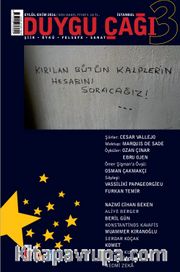 EYLÜL EKİM 2016
İSTANBUL
DUYGU ÇAĞI
3
ŞİİR • ÖYKÜ • FELSEFE • SANAT
KIRILAN BÜTÜN KALPLERİN
HESABINI
SORACAĞIZ!
Şiirler: CESAR VALLEJO
Mektup: MARQUIS DE SADE
Öyküler: OZAN ÇINAR
EBRU OJEN
Ömer Şişman'a Övgü:
OSMAN ÇAKMAKÇI
Söyleşi:
VASSILIKI PAPAGEORGIOU
FURKAN TEMİR
NAZMİ CİHAN BEKEN
ALIVE BERGER
BERİL GÜN
KONSTANTINOS KAVAFIS
MUAMMER KIRANOĞLU
SERDAR KOÇAN
KOMET
NECMİ ZEKÂ
kitapavrupa.com